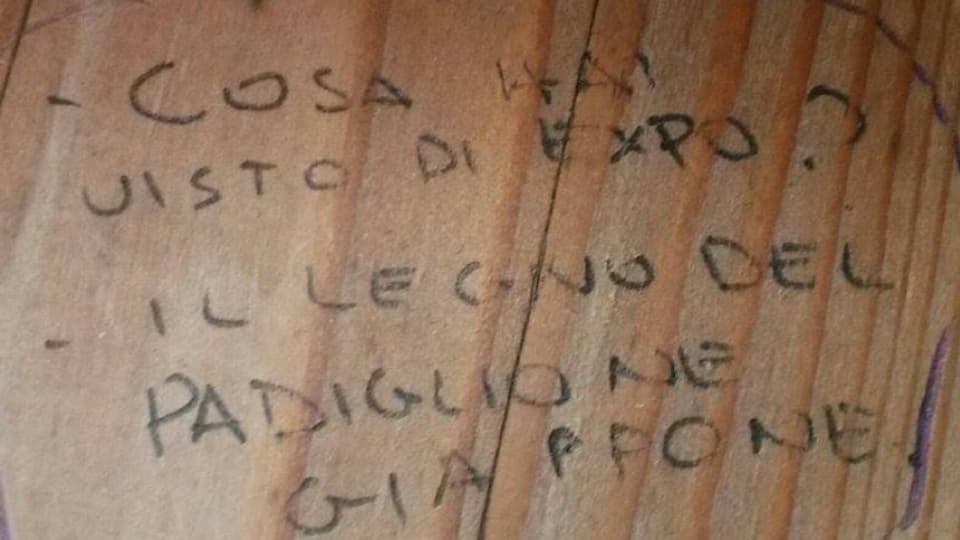 - COSA HAI
VISTO DI EXPO?
- IL LEGNO DEL
PADIGLIONE
GIAPPONE!